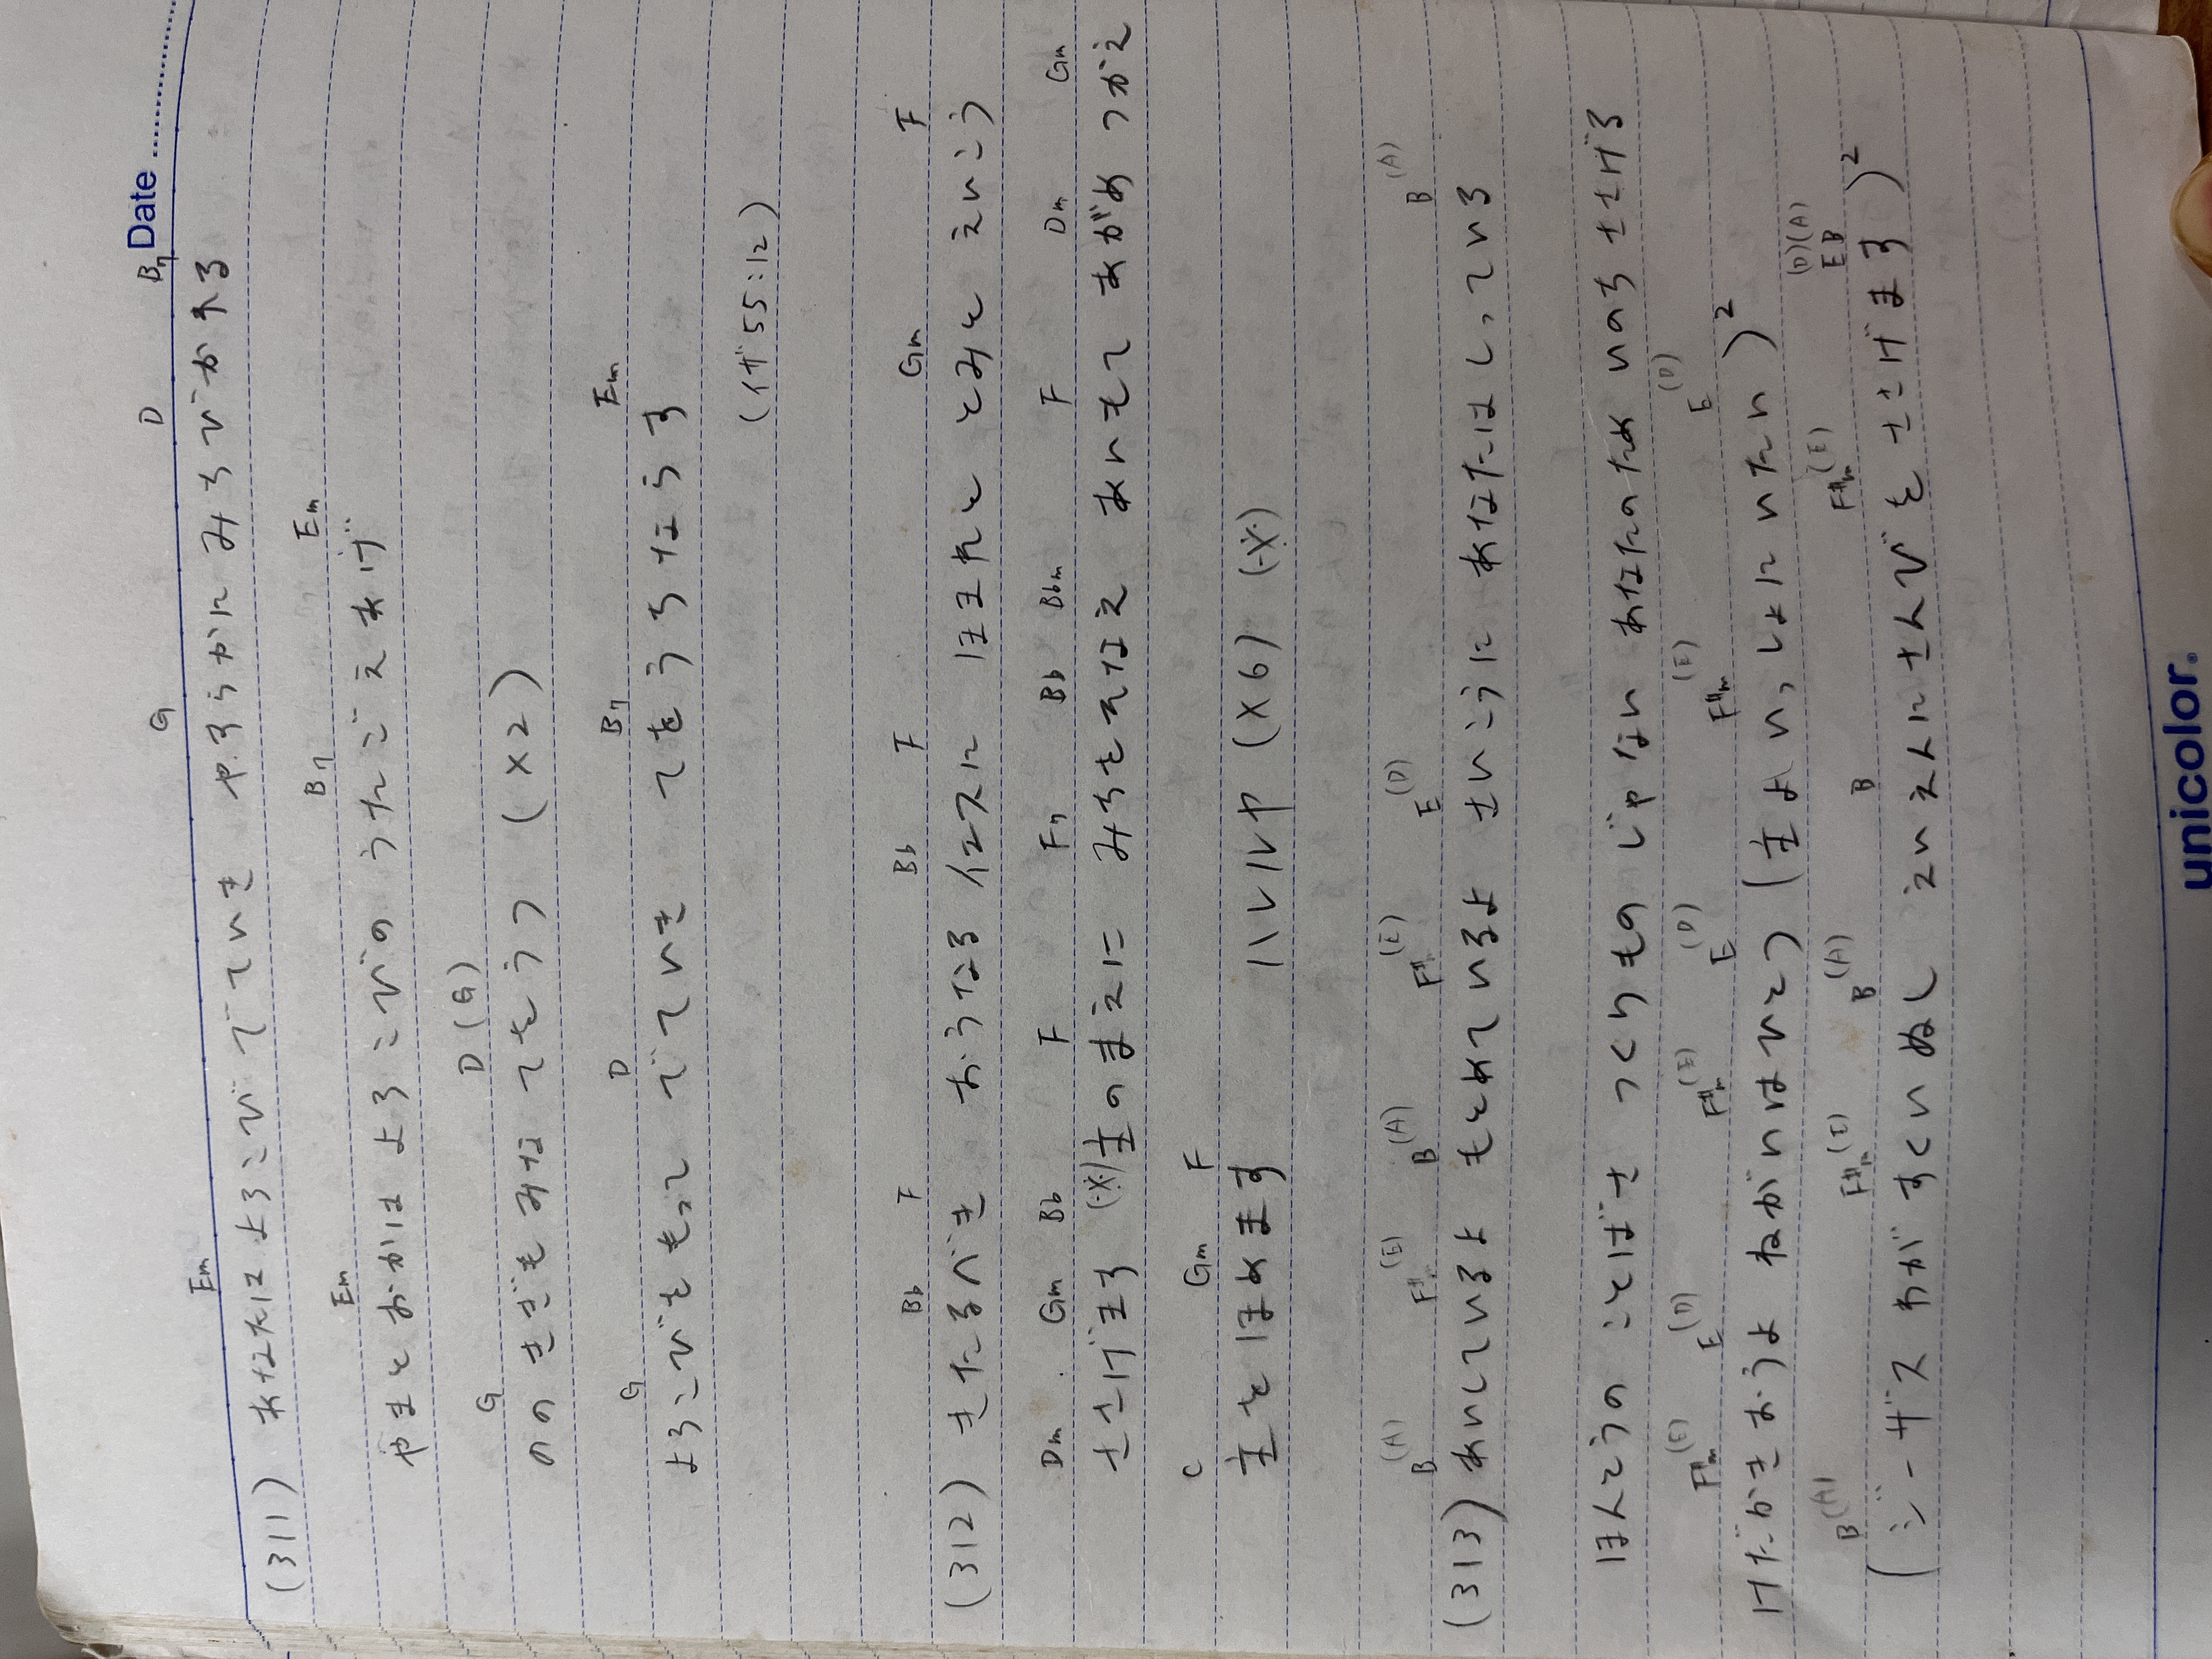 Date
Em G D B7
(311) あなたはよろこびでていき やすらかに みちびかれる
Em B7 Em
やまとおかは よろこびの うたごえあげ
G D(G)
ののきぎもみな てをうつ (×2)
G D B7 Em
よろこびをもって でていき てをうちならす
(イザ55:12)
Bb F Bb F Gm F
(312) きたるべき おうなる イエスに ほまれと とみと えいこう
Dm Gm Bb F F7 Bb Bbm F Dm Gm
ささげます (※)主のまえに みちをそなえ あいもて あがめ つかえ
C Gm F
主をほめます ハレルヤ (×6) (※)
B(A) F#m(E) B(A) F#m(E) E(D) B(A)
(313) あいしているよ もとめているよ さいこうに あなたはしっている
ほんとうの ことばさ つくりもの じゃない あなたのため いのち ささげる
F#m(E) E(D) F#m(E) E(D) F#m(E) E(D)
けだかきおうよ ねがいはひとつ (主よいっしょにいたい)²
B(A) F#m(E) B(A) B F#m(E) (D)(A) E B
(ジーザス わが すくいぬし えいえんに さんびを ささげます)²
unicolor.